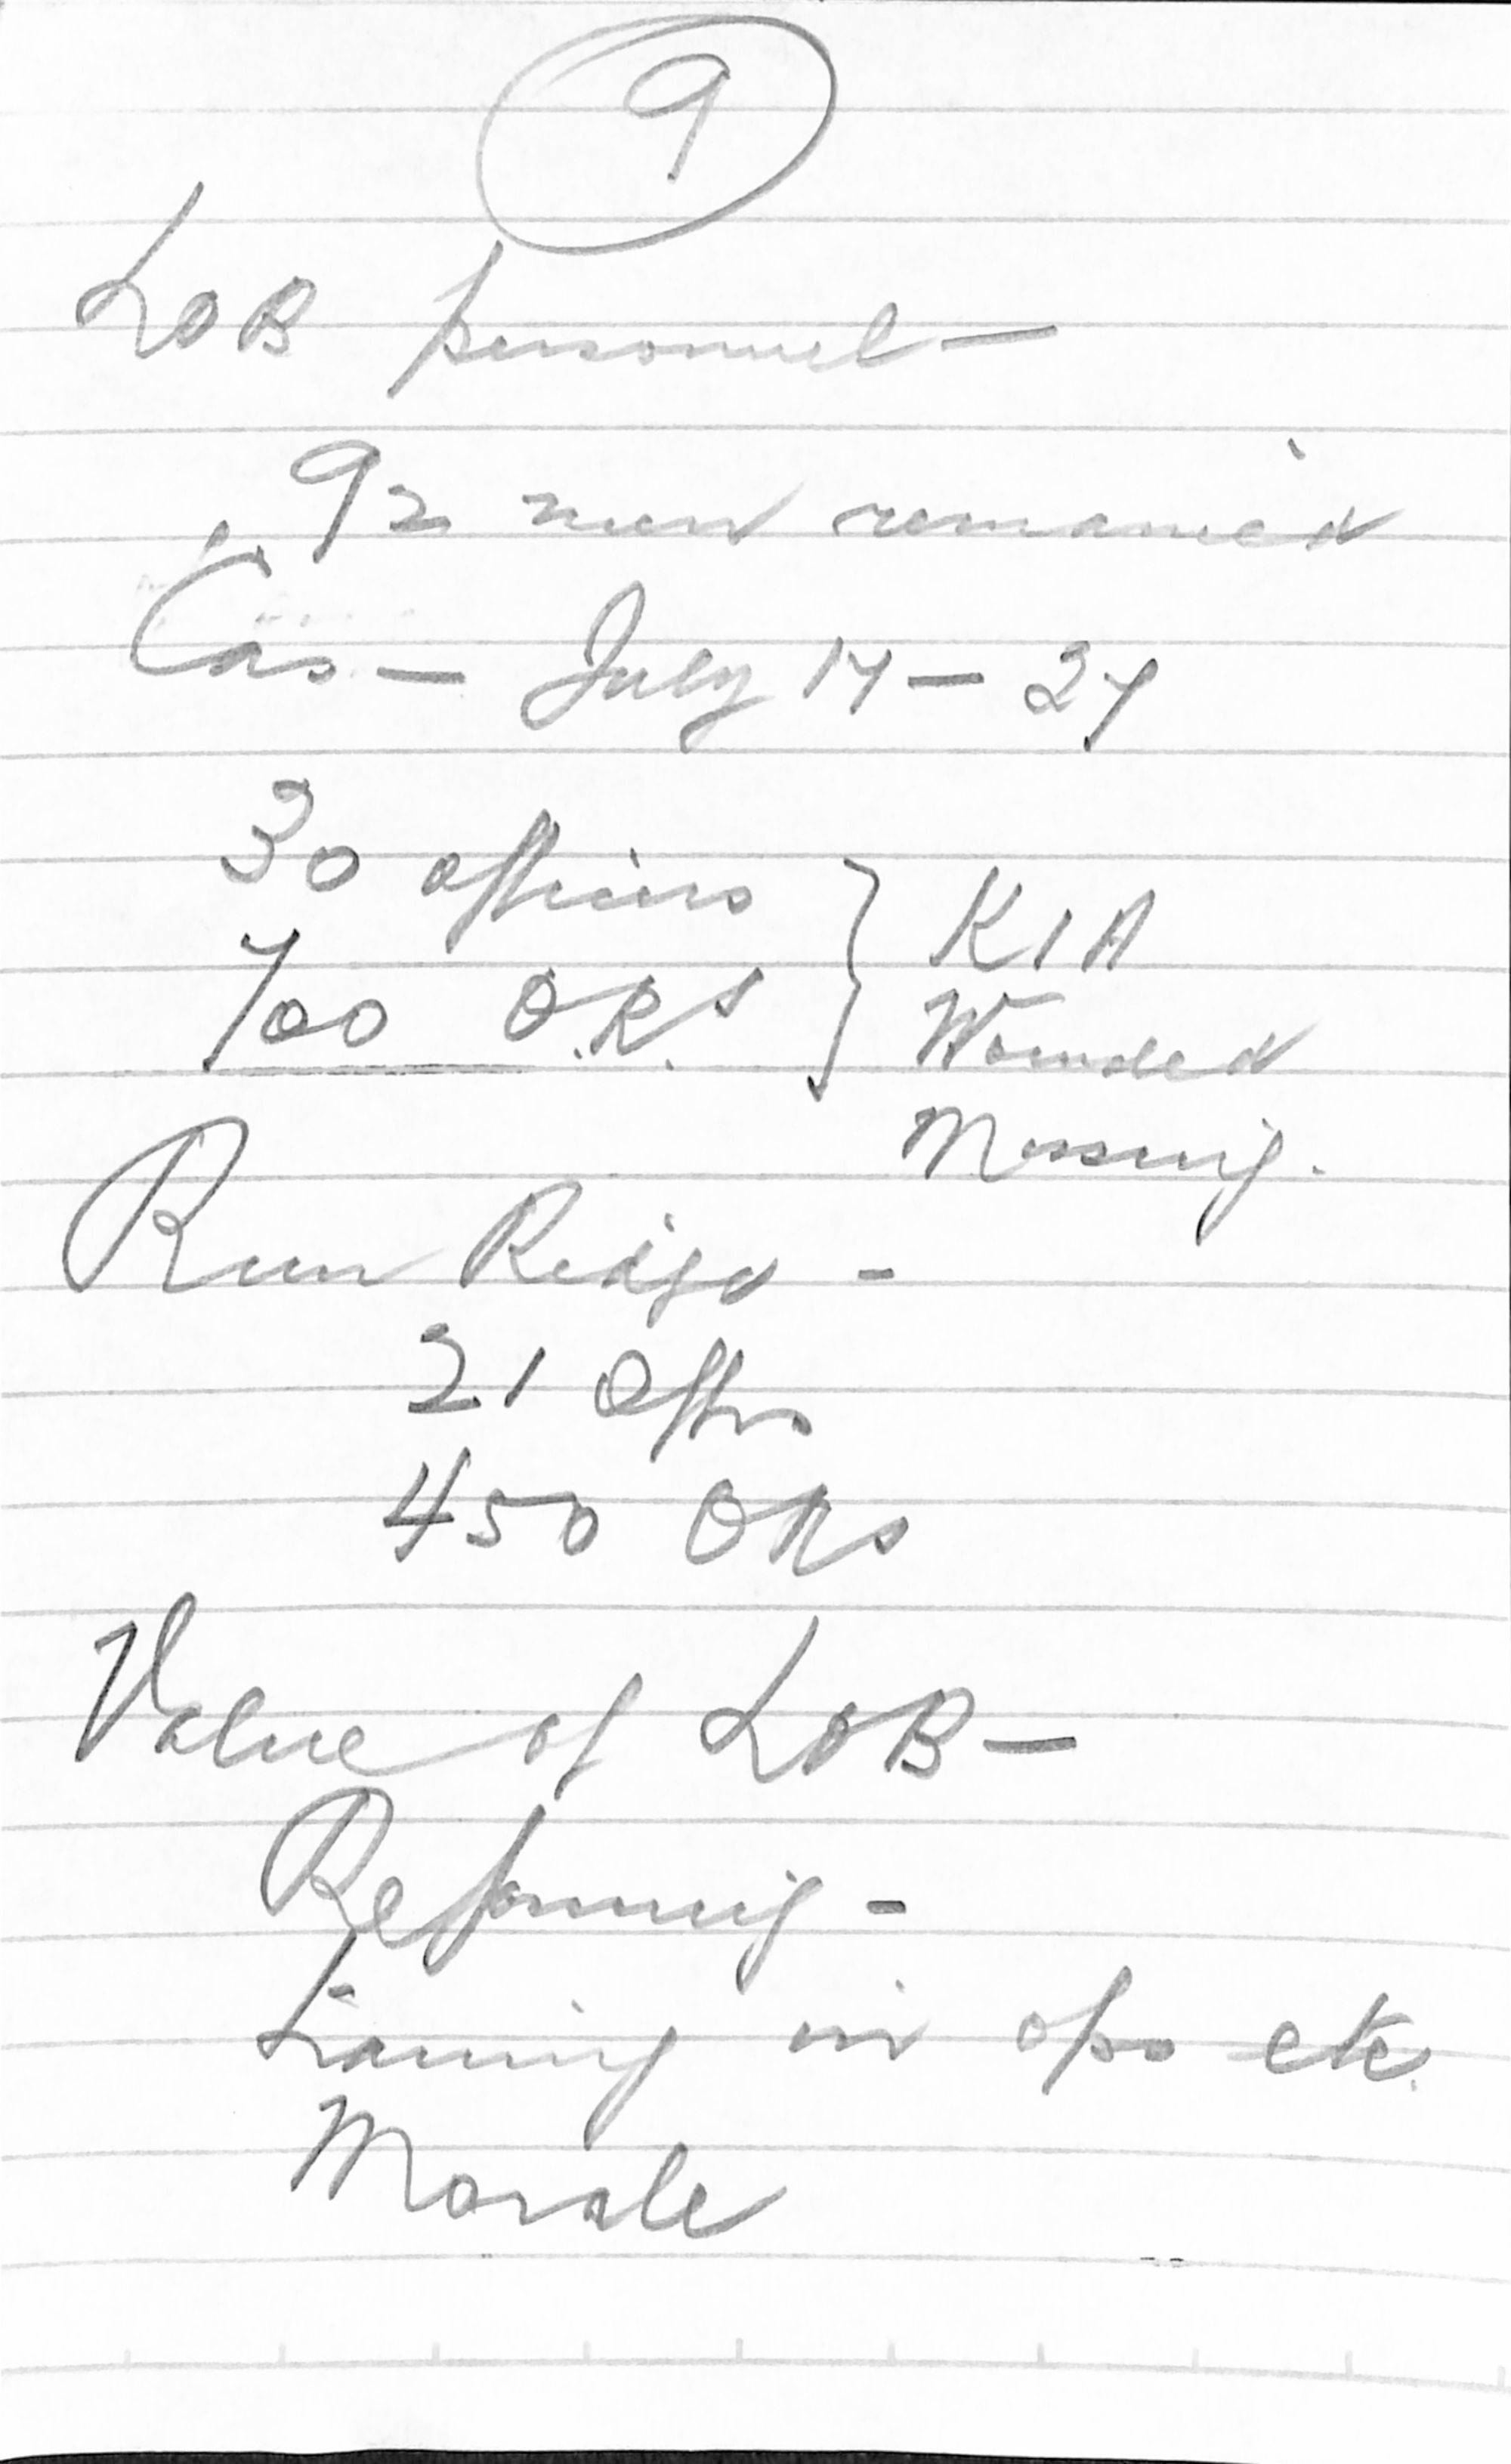 9
LOB personnel —
92 men remained
Cas — July 14 — 27
30 officers } KIA
700 O.R.s Wounded
Missing.
Run Ridge -
21 Offrs
450 ORs
Value of LOB —
Reforming -
training in ops etc.
Morale